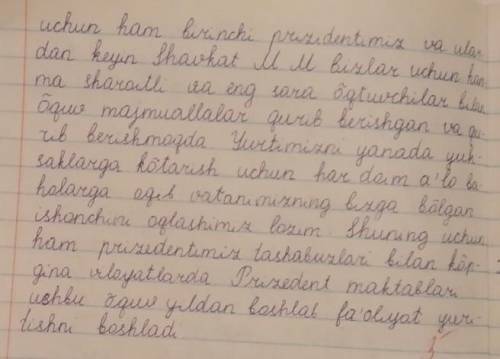 uchun ham birinchi prizidentimiz va ular
dan keyin Shavkat M M bizlar uchun ham
ma sharoitli va eng sara õqituvchilar bilan
Õquv majmuallalar qurib berishgan va qu
rib berishmoqda Yurtimizni yanada yuk-
saklarga kõtarish uchun har doim a'lo ba
holarga oqib vatanimizning bizga bõlgan
ishonchini oqlashimiz lozim. Shuning uchun
ham prizedentimiz tashabuzlari bilan kõp-
gina viloyatlarda Prizedent maktablari
ushbu õquv yildan boshlab fa'oliyat yuri-
tishni boshladi